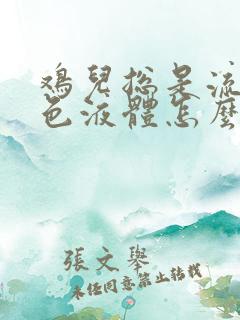 鸡兒总是流
色液體怎麼
張文舉
未任同意禁止转载